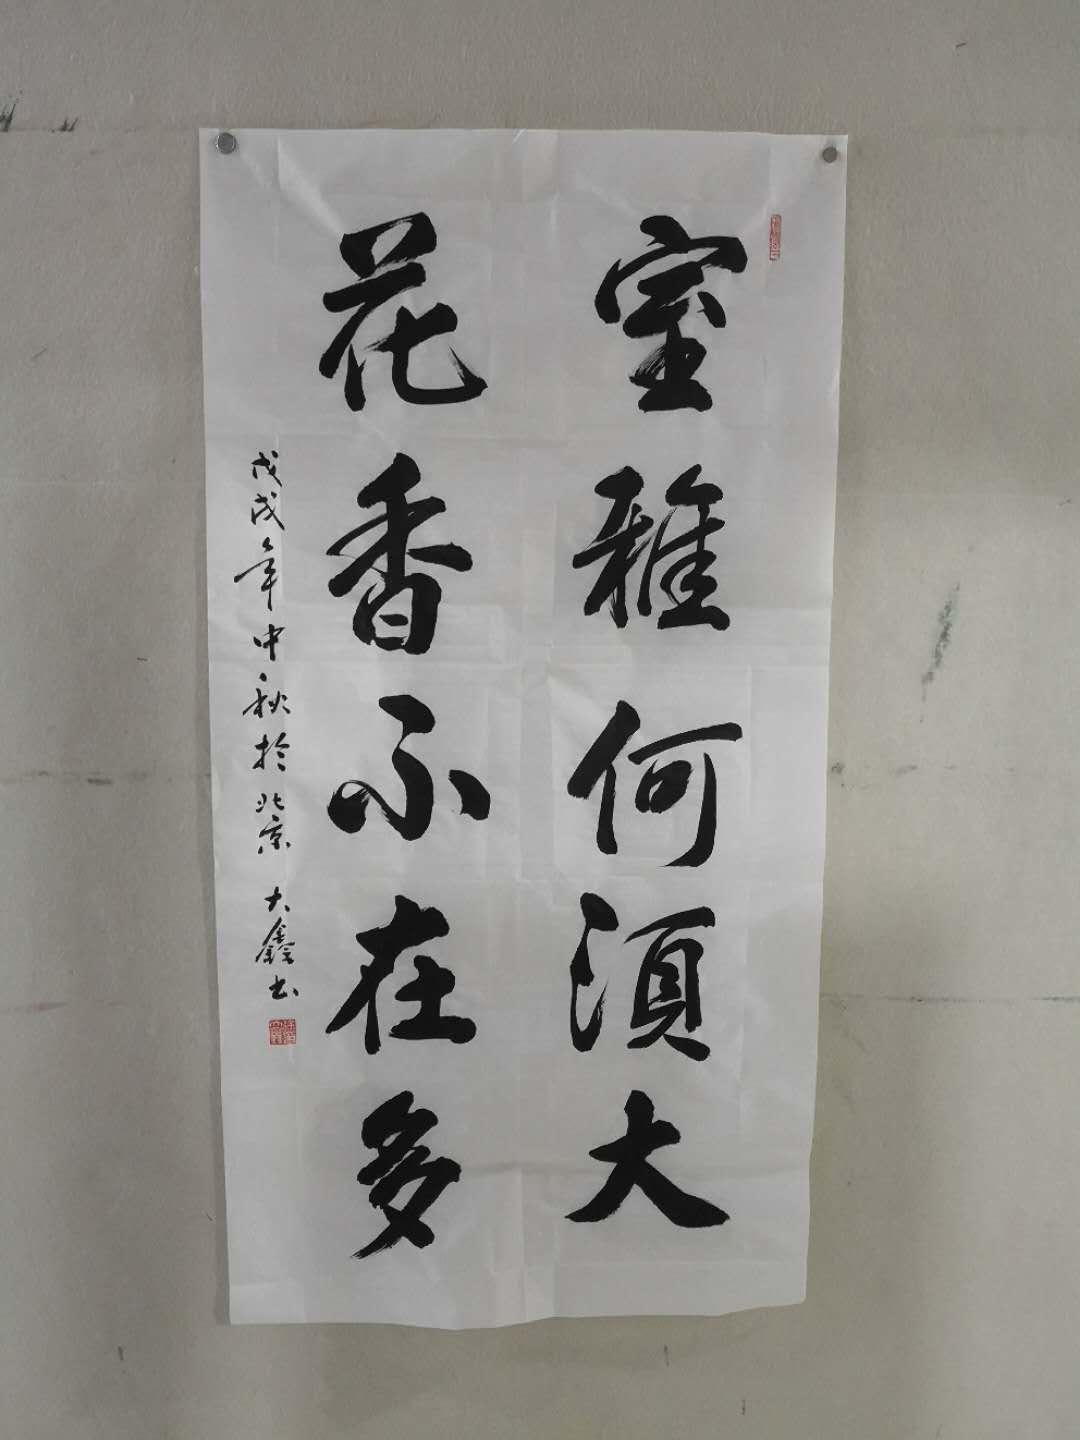 室雅何須大
花香不在多
戊戌年中秋於北京大鑫书